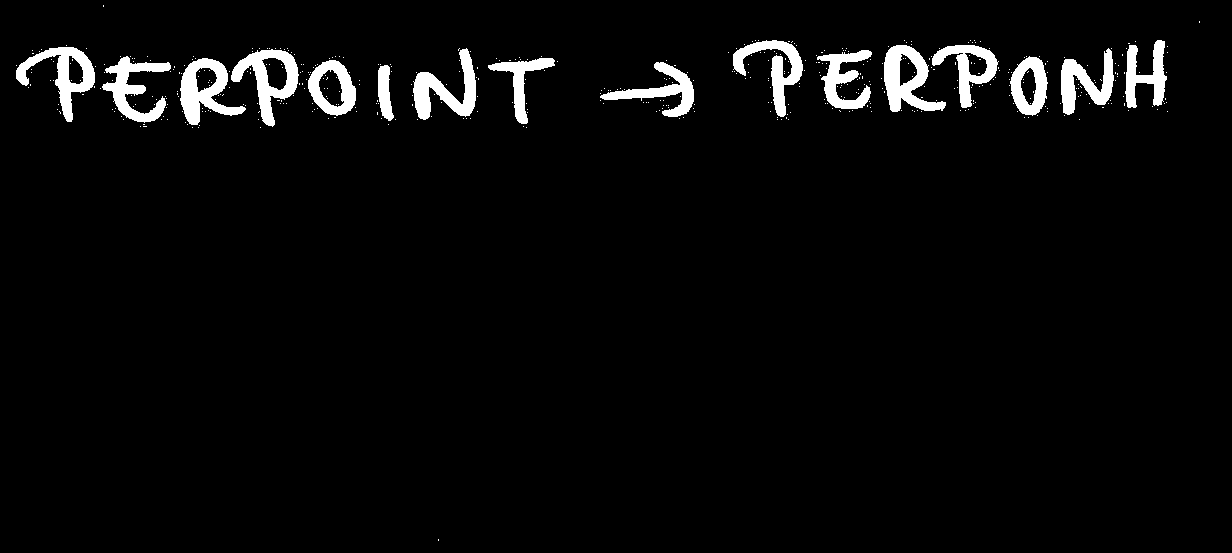 PERPOINT → PERPONH